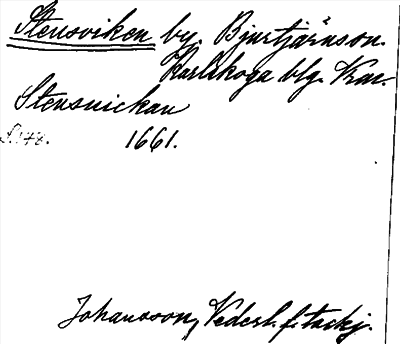 Stensviken by. Bjurtjärnson.
Karlskoga blg. Kar.
Stensuickan
S. 178. 1661.
Johansson, Vederl. f. tackj.